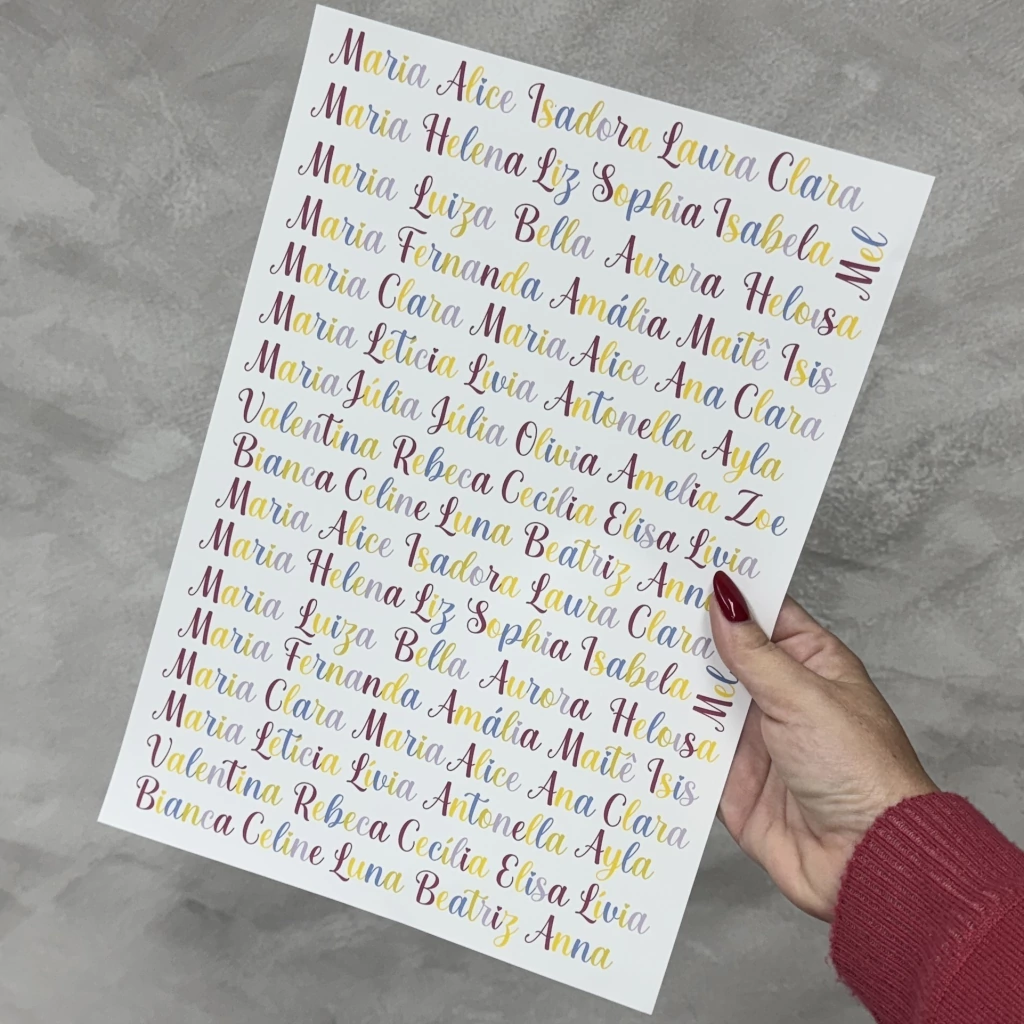 Maria Alice Isadora Laura Clara
Maria Helena Liz Sophia Isabela
Mel
Maria Luiza Bella Aurora Heloısa
Maria Fernanda Amália Maitê Isis
Maria Clara Maria Alice Ana Clara
Maria Letícia Lívia Antonella Ayla
Maria Júlia Júlia Olivia Amelia Zoe
Valentina Rebeca Cecília Elisa Lívia
Bianca Celine Luna Beatriz Anna
Maria Alice Isadora Laura Clara
Maria Helena Liz Sophia Isabela
Mel
Maria Luiza Bella Aurora Heloısa
Maria Fernanda Amália Maitê Isis
Maria Clara Maria Alice Ana Clara
Maria Letícia Lívia Antonella Ayla
Valentina Rebeca Cecília Elisa Lívia
Bianca Celine Luna Beatriz Anna